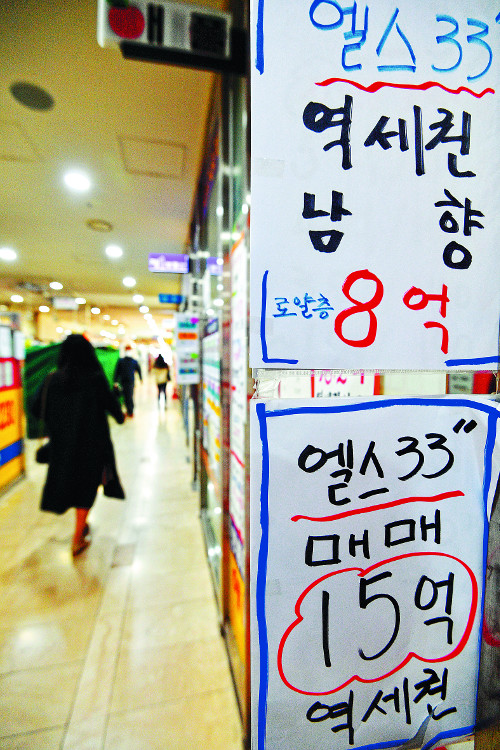 엘스 33"
역세권
남 향
로얄층 8억
엘스 33"
매매
15억
역세권